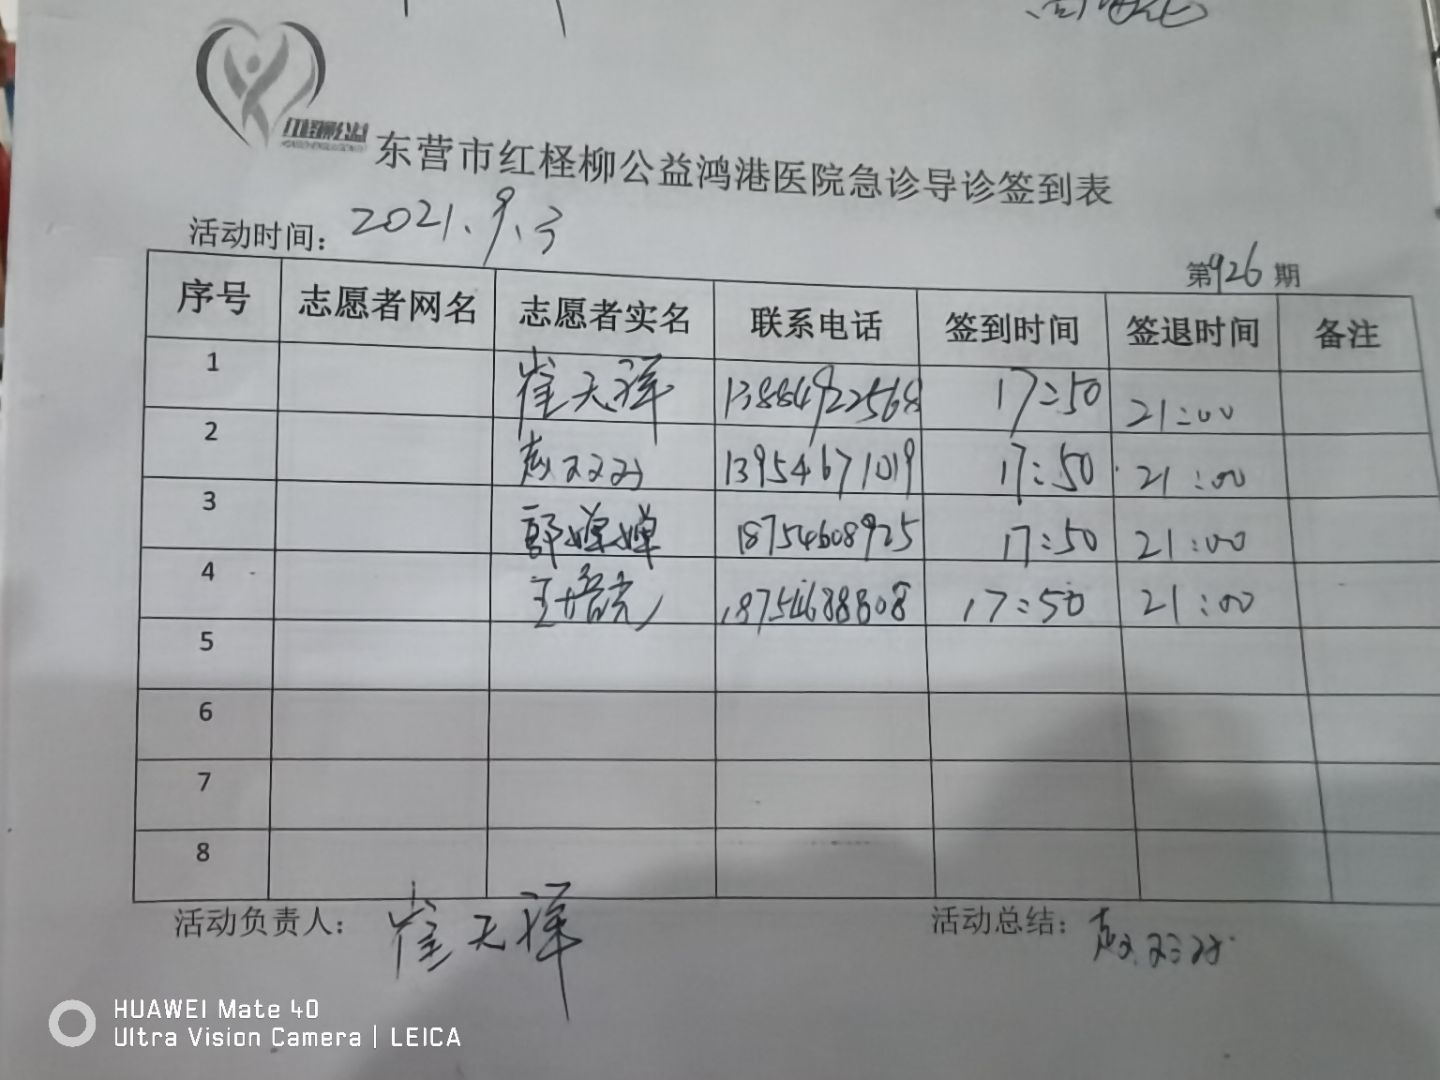 红柽柳公益
东营市红柽柳公益鸿港医院急诊导诊签到表
活动时间: 2021.9.3
第926期
序号 志愿者网名 志愿者实名 联系电话 签到时间 签退时间 备注
1 崔天祥 13884922568 17:50 21:00
2 13954671019 17:50 21:00
3 郭婵婵 18754608925 17:50 21:00
4 18754688808 17:50 21:00
5
6
7
8
活动负责人: 崔天祥 活动总结:
HUAWEI Mate 40
Ultra Vision Camera | LEICA